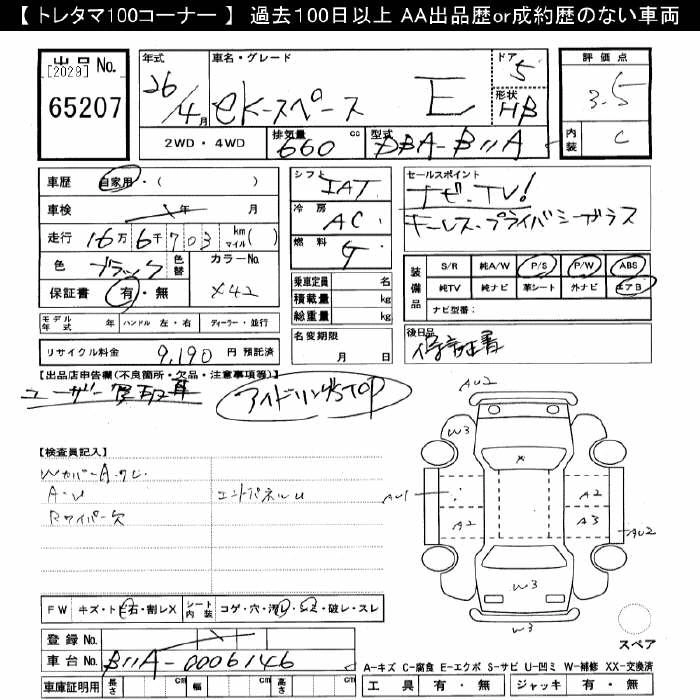 【トレタマ100コーナー】 過去100日以上 AA出品歴or成約歴のない車両
出品 No. [2029] 65207
年式 26/4月 車名・グレード eKスペース E ドア 5 形状 HB
2WD・4WD 排気量 660 cc 型式 DBA-B11A
評価点 3.5 内装 C
車歴 自家用・( )
車検 年 月
走行 16万6千703 km マイル( )
色 ブラック 色替 カラーNo. X42
保証書 有・無
シフト IAT
冷房 AC
燃料 G
乗車定員 名
積載量 kg
総重量 kg
セールスポイント
ナビ・TV!
キーレス・プライバシーガラス
装備品 S/R 純A/W P/S P/W ABS
純TV 純ナビ 革シート 外ナビ エアB
ナビ型番:
モデル年式 年 ハンドル 左・右 ディーラー・並行
リサイクル料金 9,190 円 預託済
名変期限 月 日
後日品 保証書
【出品店申告欄(不良箇所・欠品・注意事項等)】
ユーザー買取車 アイドリングSTOP
【検査員記入】
Wカバー A・クレ
A・U エンドパネルU
Rワイパー欠
AU2
W3
X
AU1 A2
A2 A3
AU2
W3
W3
FW キズ・トビ石・割レX シート内装 コゲ・穴・汚レ・シミ・破レ・スレ
スペア
登録 No.
車台 No. B11A-0006146
車庫証明用 長さ cm 幅 cm 高さ cm
A-キズ C-腐食 E-エクボ S-サビ U-凹ミ W-補修 XX-交換済
工具 有・無 ジャッキ 有・無